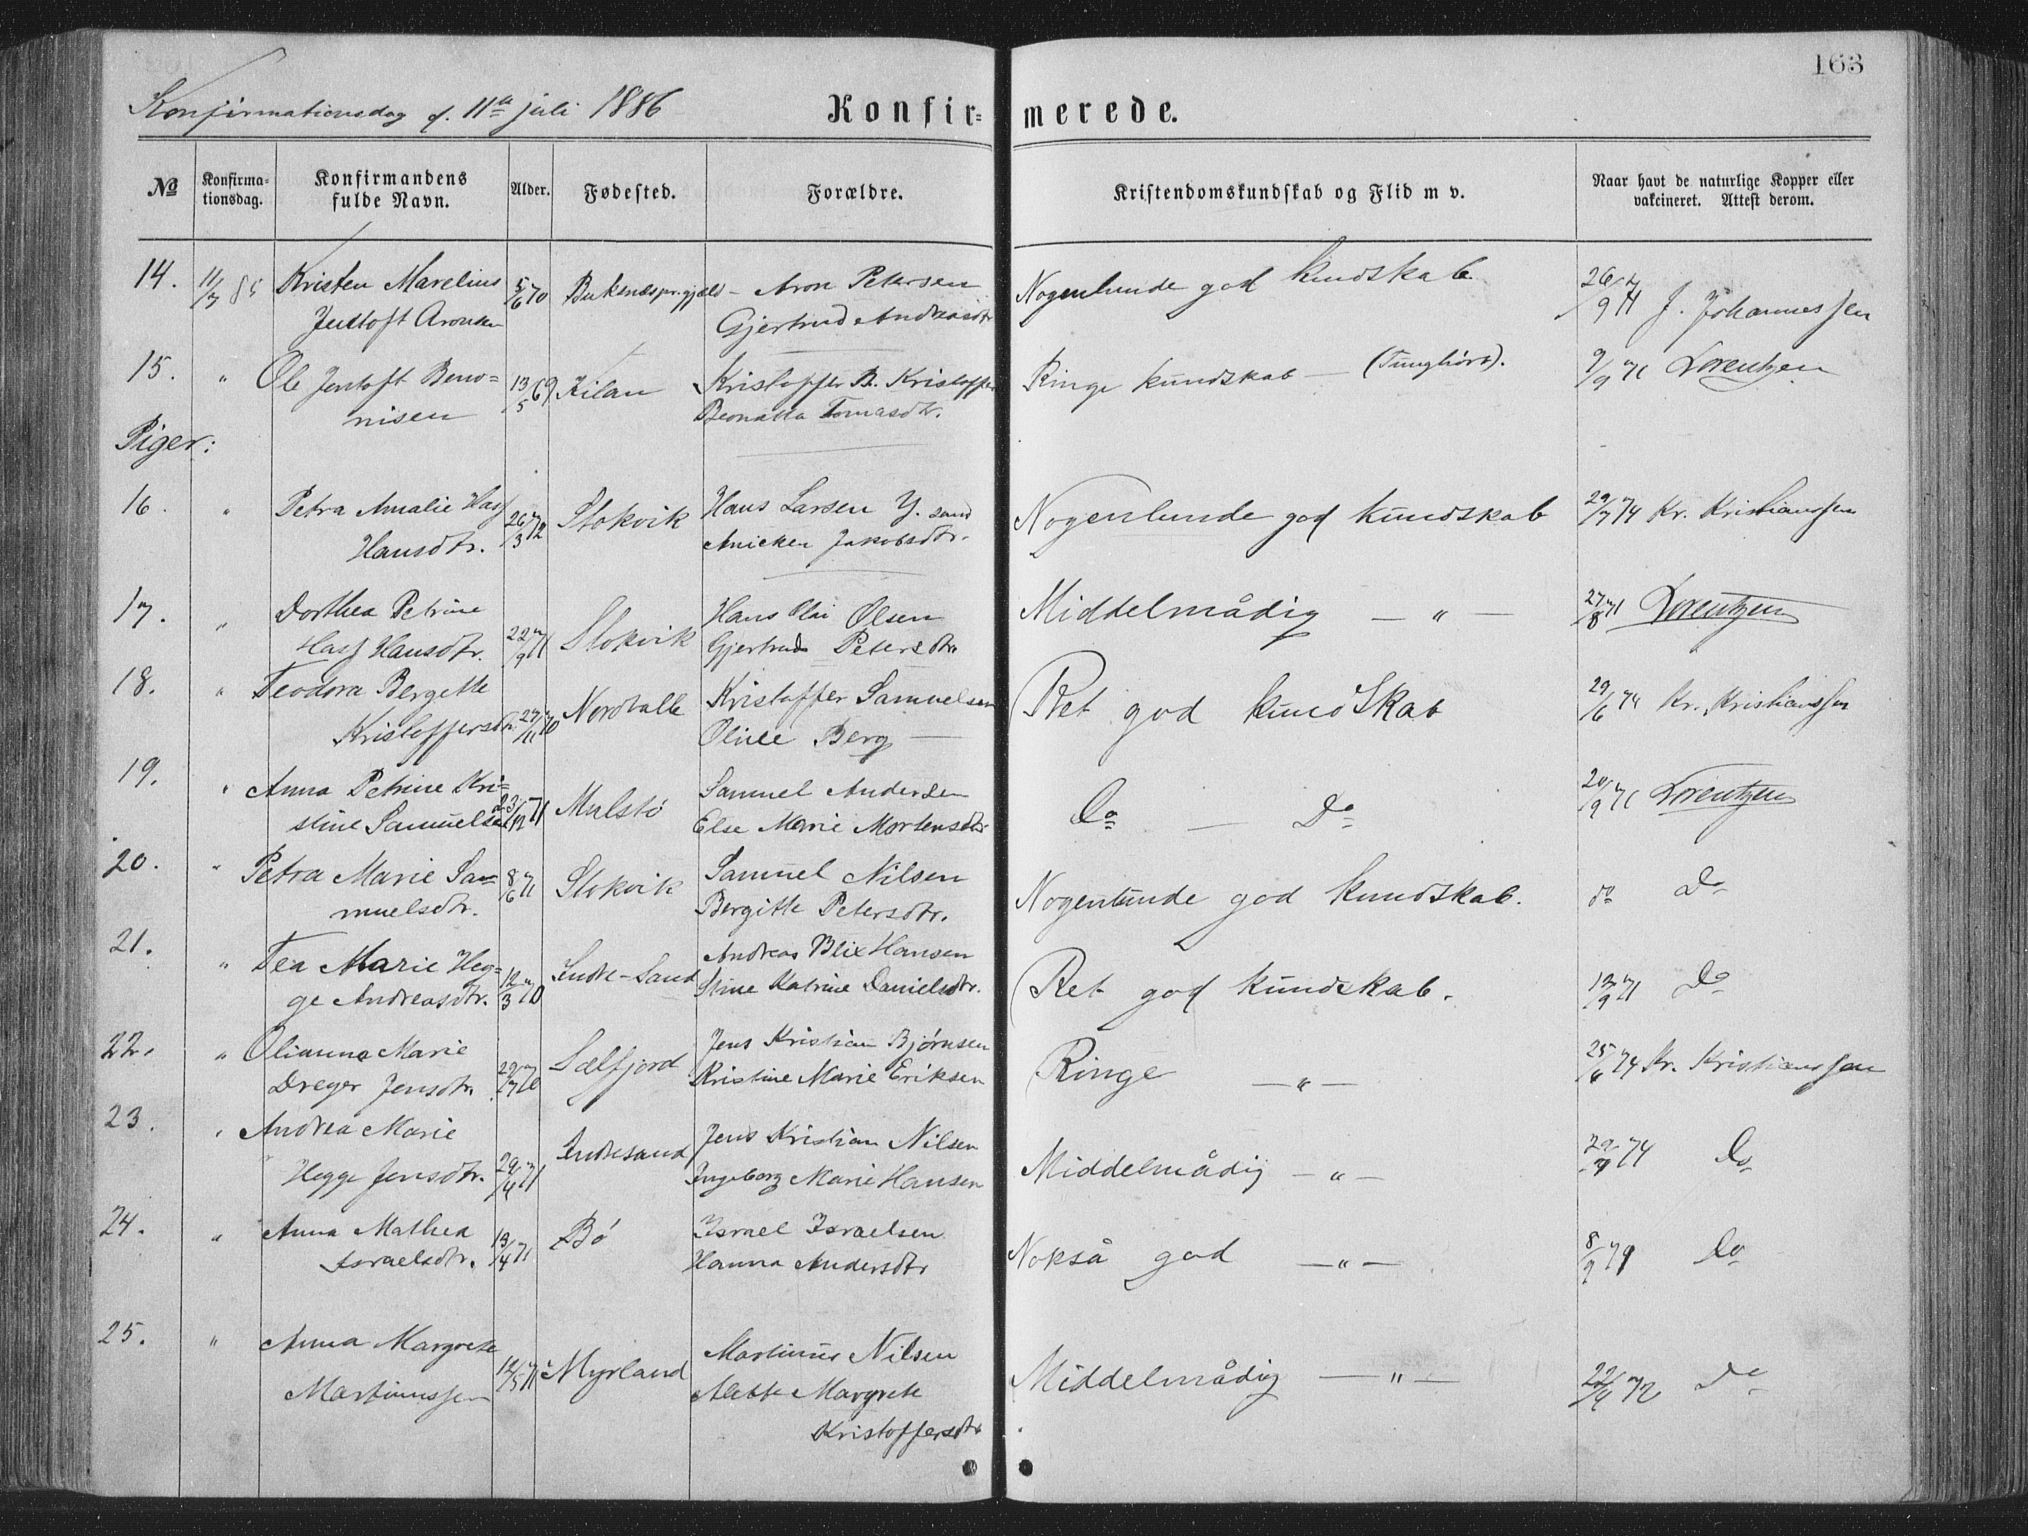 163
Konfirmationsdag d. 11te juli 1886
Konfir= merede.
No
Konfirma-
tionsdag.
Konfirmandens
fulde Navn.
Alder.
Fødested.
Forældre.
Kristendomskundskab og Flid m v.
Naar havt de naturlige Kopper eller
vakcineret. Attest derom.
14. 11/7 85 Kristen Marelius 5/6 70 Buksnæs pr.gjæld – Aron Petersen Nogenlunde god kundskab 26/9 71 J. Johannessen
Jentoft Aronsen Gjertrud Andreasdtr
15. " Ole Jentoft Beno= 13/5 69 Kilan Kristoffer B. Kristoffer Ringe kundskab — (Tunghört). 9/9 71 Lorentzen
nisen Beonatta Tomasdtr.
Piger:
16. " Petra Amalie Hass 26/3 72 Stokvik Hans Larsen Y. sand Nogenlunde god kundskab 29/7 74 Kr. Kristianssen
Hansdtr. Anicken Jakobsdtr.
17. " Dorthea Petrine 22/9 71 Stokvik Hans Olai Olsen Middelmådig — " — 27/8 71 Lorentzen
Hass Hansdtr. Gjertrud Petersdtr
18. " Teodora Bergette 27/11 70 Nordvalle Kristoffer Samuelsen Ret god kundskab 29/6 74 Kr. Kristianssen
Kristoffersdtr. Oline Berg —
19. " Anna Petrine Kri= 23/12 71 Mulstø Samuel Andersen Do — Do 20/9 71 Lorentzen
stine Samuelsen Else Marie Mortensdtr
20. " Petra Marie Sa= 8/6 71 Stokvik Samuel Nilsen Nogenlunde god kundskab. do Do
muelsdtr. Bergitte Petersdtr.
21. " Tea Marie Heg= 12/3 70 Indre-Sand Andreas Blix Hansen Ret god kundskab. 12/9 71 Do
ge Andreasdtr. Stine Katrine Danielsdtr.
22. " Olianna Marie 29/7 70 Sælfjord Jens Kristian Bjørnsen Ringe — " — 25/6 74 Kr. Kristianssen
Dreyer Jensdtr. Kristine Marie Eriksen
23. " Andrea Marie 29/4 71 Indresand Jens Kristian Nilsen Middelmådig — " — 74 Do
Hegge Jensdtr. Ingeborg Marie Hansen
24. " Anna Mathea 13/4 71 Bø Israel Israelsen Nokså god — " — 8/9 79 Do
Israelsdtr. Hanna Andersdtr
25. " Anna Margrete 12/5 71 Myrland Martinus Nilsen Middelmådig — " — 22/9 72 Do
Martinussen Alette Margrete
Kristoffersdtr